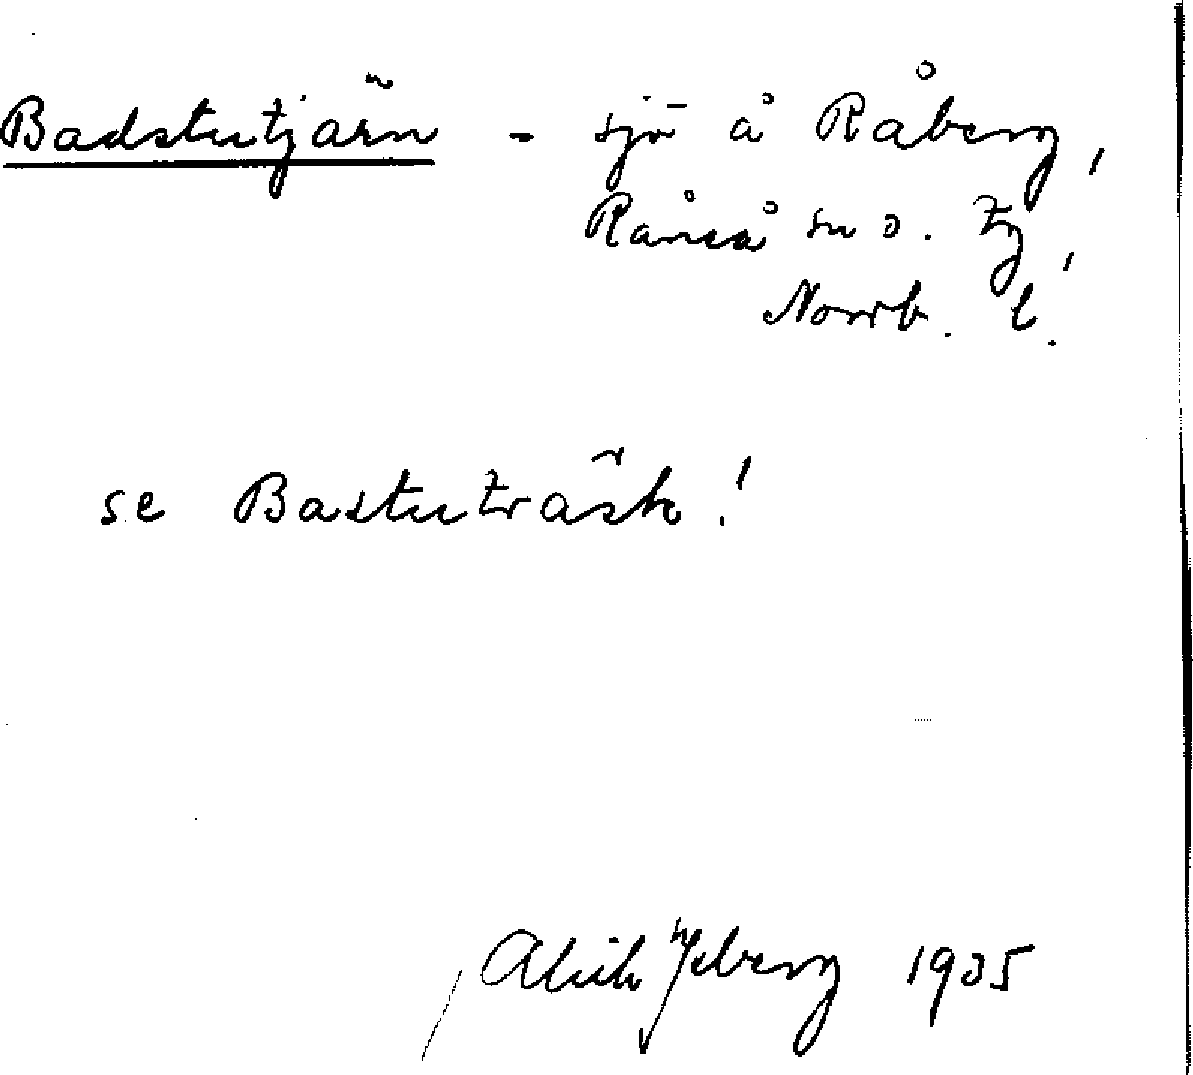 Badstutjärn - sjö å Råberg,
Råneå sn o. tg,
Norrb. l.
se Bastuträsk!
1905